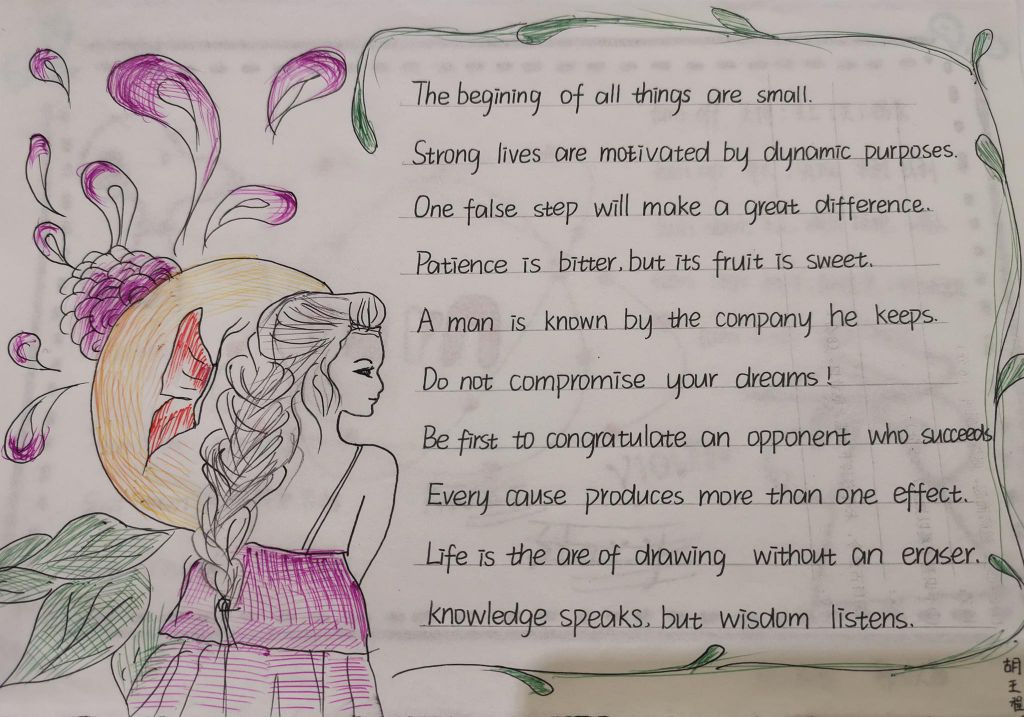 The begining of all things are small.
Strong lives are motivated by dynamic purposes.
One false step will make a great difference.
Patience is bitter, but its fruit is sweet.
A man is known by the company he keeps.
Do not compromise your dreams!
Be first to congratulate an opponent who succeeds
Every cause produces more than one effect.
Life is the are of drawing without an eraser.
knowledge speaks, but wisdom listens.
胡王